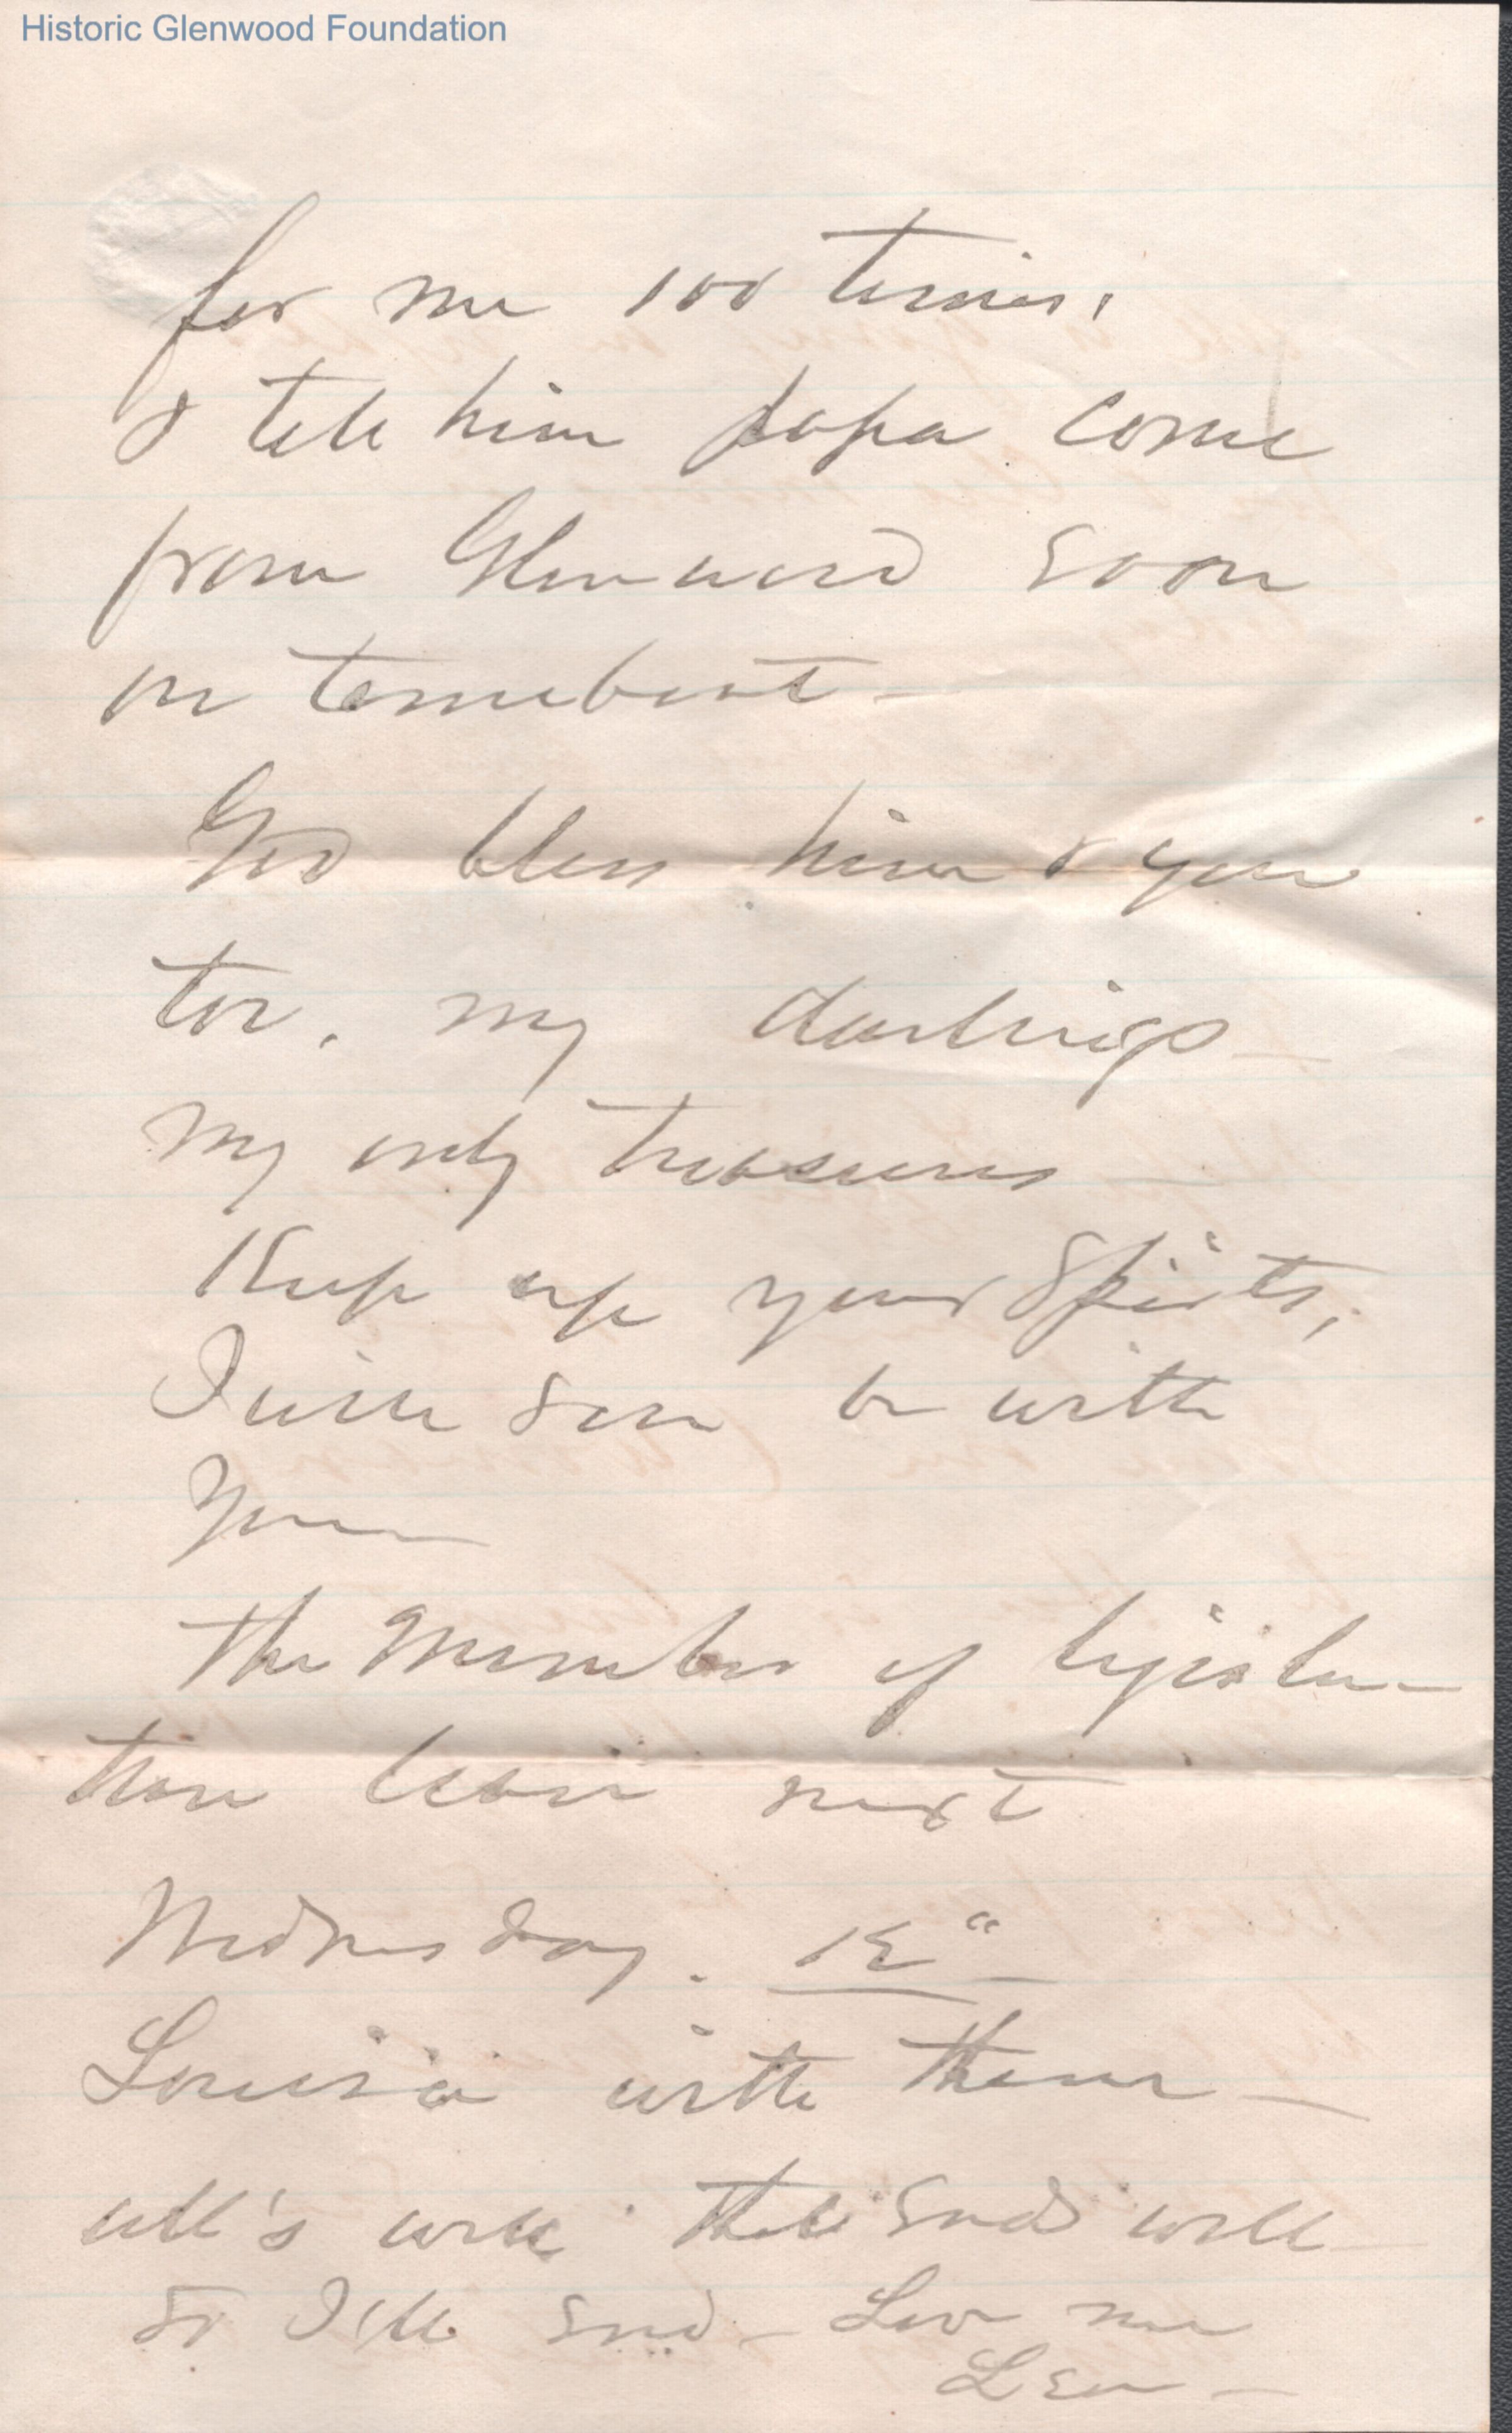 Historic Glenwood Foundation
for me 100 times.
& tell him papa come
from Glenwood soon
on
God bless him & you
too. my darlings —
my only treasures —
Keep up your Spirits,
I will soon be with
you —
The Members of Legisla-
leave next
Wednesday. 15" —
Louisa with them —
all's well that ends well —
so I'll end — Love me
Leu —